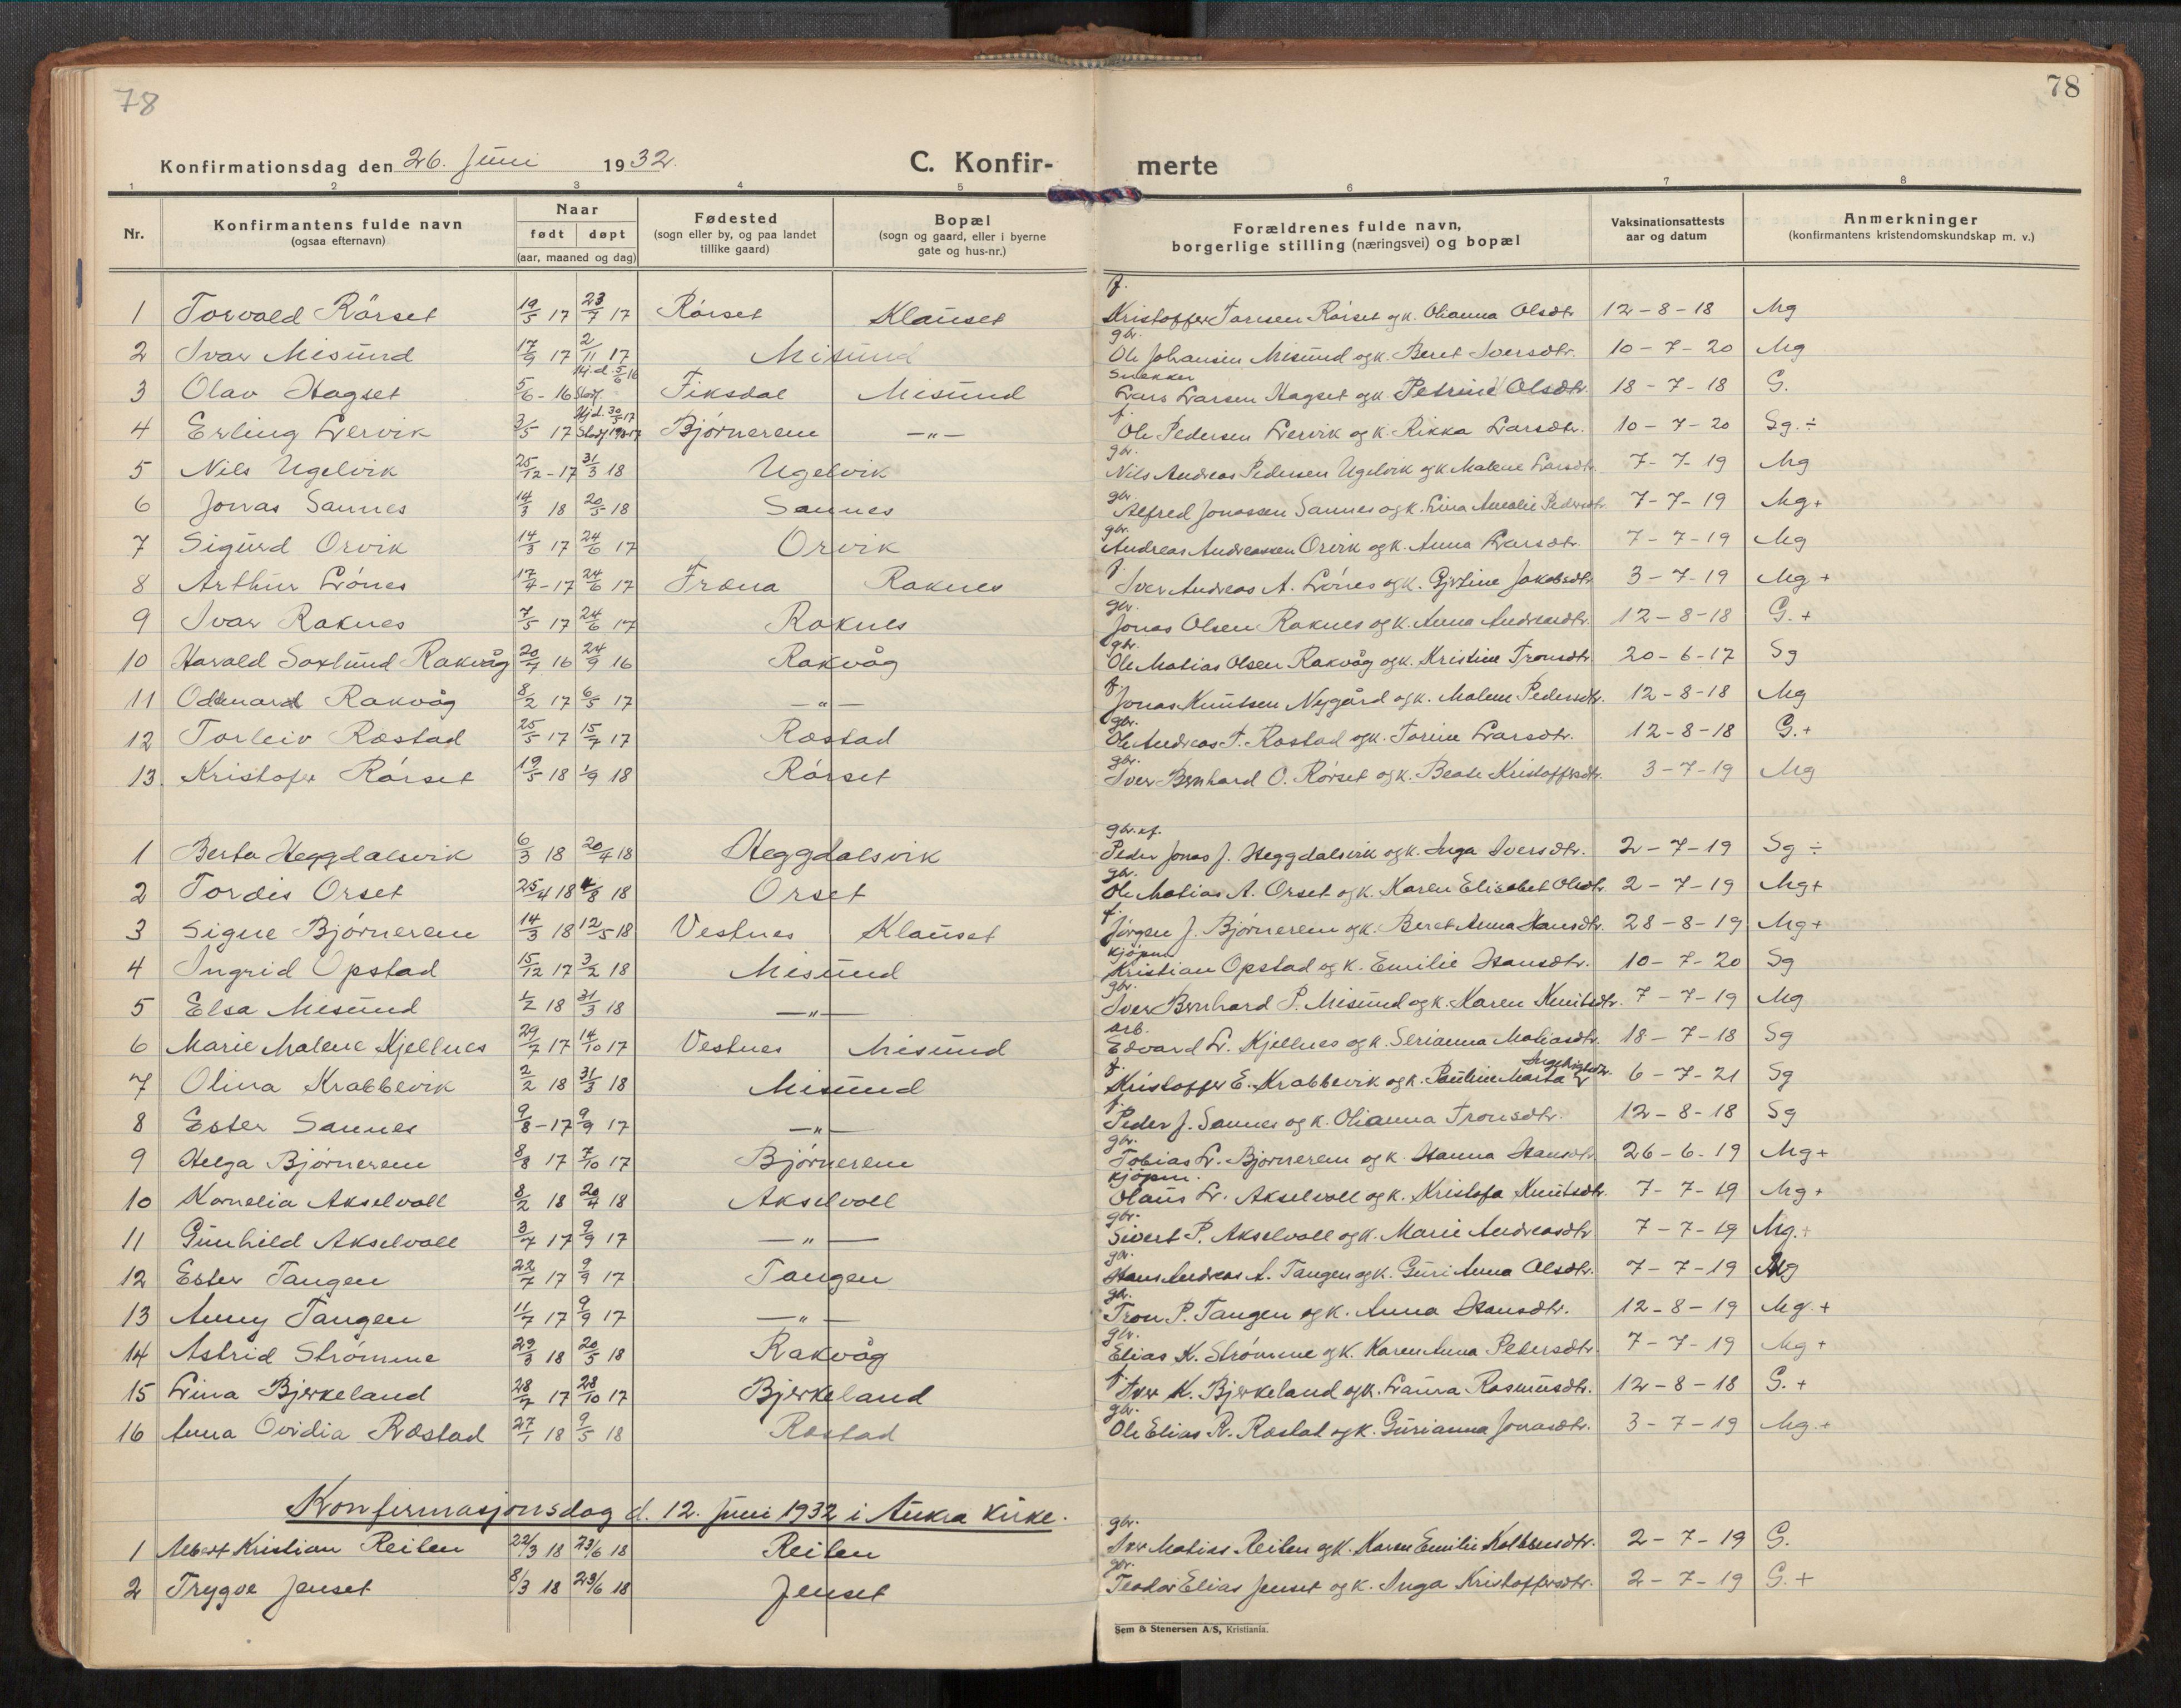 78
78
Konfirmationsdag den 26. Juni 1932.
C. Konfir- merte
1 2 3 4 5 6 7 8
Nr.
Konfirmantens fulde navn
(ogsaa efternavn)
Naar
født døpt
(aar, maaned og dag)
Fødested
(sogn eller by, og paa landet
tillike gaard)
Bopæl
(sogn og gaard, eller i byerne
gate og hus-nr.)
Forældrenes fulde navn,
borgerlige stilling (næringsvei) og bopæl
Vaksinationsattests
aar og datum
Anmerkninger
(konfirmantens kristendomskundskap m. v.)
f.
1 Torvald Rørset 19/5 17 23/7 17 Rørset Klauset Kristoffer Iversen Rørset og k. Olianna Olsdtr 12-8-18 Mg
gbr.
2 Ivar Misund 17/9 17 2/11 17 Misund Ole Johansen Misund og k. Beret Iversdtr. 10-7-20 Mg
Hj.d. 5/6 16
snekker
3 Olav Hagset 5/6-16 Stadf. Fiksdal Misund Lars Larsen Hagset og k. Petrine Olsdtr. 18-7-18 G.
Hj.d. 30/5 17
f.
4 Erling Lervik 3/5 17 Stadf. Bjørnerem —"— Ole Pedersen Lervik og k. Rikka Larsdtr. 10-7-20 Sg. ÷
gbr.
5 Nils Ugelvik 25/12-17 31/3 18 Ugelvik Nils Andreas Pedersen Ugelvik og k. Malene Larsdtr. 7-7-19 Mg
gbr.
6 Jonas Sannes 14/3 18 20/5 18 Sannes Alfred Jonassen Sannes og k. Lina Amalie Pedersdtr. 7-7-19 Mg+
gbr.
7 Sigurd Orvik 14/3 17 24/6 17 Orvik Andreas Andreassen Orvik og k. Anna Larsdtr. 7-7-19 Mg
f.
8 Arthur Lønes 17/4-17 24/6 17 Fræna Raknes Iver Andreas A. Lønes og k. Gjertine Jakobsdtr 3-7-19 Mg +
gbr.
9 Ivar Raknes 7/5 17 24/6 17 Raknes Jonas Olsen Raknes og k. Anna Andreasdtr. 12-8-18 G. +
gbr.
10 Harald Saxlund Rakvåg 20/7 16 24/9 16 Rakvåg Ole Matias Olsen Rakvåg og k. Kristine Tronsdtr 20-6-17 Sg
f.
11 Oddmard Rakvåg 8/2 17 6/5 17 —"— Jonas Knutsen Nygård og k. Malene Pedersdtr. 12-8-18 Mg
gbr.
12 Torleiv Ræstad 25/5 17 15/7 17 Ræstad Ole Andreas T. Ræstad og k. Torine Larsdtr. 12-8-18 G.+
gbr.
13. Kristofer Rørset 19/5 18 1/9 18 Rørset Iver Bernhard O. Rørset og k. Beate Kristoffersdtr. 3-7-19 Mg
gbr. +f.
1 Berta Heggdalsvik 6/3 18 20/4 18 Heggdalsvik Peder Jonas J. Heggdalsvik og k. Inga Iversdtr. 2-7-19 Sg ÷
gbr.
2 Tordis Orset 25/4 18 4/8 18 Orset Ole Matias A. Orset og k. Karen Elisabet Olsdtr. 2-7-19 Mg+
f.
3 Signe Bjørnerem 14/3 18 12/5 18 Vestnes Klauset Jørgen J. Bjørnerem og k. Beret Anna Hansdtr. 28-8-19 Mg+
kjøpm.
4 Ingrid Opstad 15/12 17 3/2 18 Misund Kristian Opstad og k. Emilie Hansdtr. 10-7-20 Sg
gbr.
5 Elsa Misund 1/2 18 31/3 18 —"— Iver Bernhard P. Misund og k. Karen Knutsdtr. 7-7-19 Mg
arb.
6 Marie Malene Kjellnes 29/7 17 14/10 17 Vestnes Misund Edvard L. Kjellnes og k. Serianna Matiasdtr. 18-7-18 Sg
f.
7 Olina Krabbevik 2/2 18 31/3 18 Misund Kristoffer E. Krabbevik og k. Pauline Marta 6-7-21 Sg
f.
8 Ester Sannes 9/8-17 9/9 17 —"— Peder J. Sannes og k. Olianna Tronsdtr. 12-8-18 Sg
gbr.
9 Helga Bjørnerem 8/8 17 7/10 17 Bjørnerem Tobias L. Bjørnerem og k. Hanna Hansdtr 26-6-19 Mg+
kjøpm.
10 Kornelia Akselvoll 8/2 18 20/4 18 Akselvoll Olaus L. Akselvoll og k. Kristofa Knutsdtr. 7-7-19 Mg+
gbr.
11 Gunhild Akselvoll 3/7 17 9/9 17 —"— Sivert P. Akselvoll og k. Marie Andreasdtr 7-7-19 Mg.+
gbr.
12 Ester Tangen 22/7 17 9/9 17 Tangen Hans Andreas A. Tangen og k. Guri Anna Olsdtr. 7-7-19 Mg
gbr.
13 Anny Tangen 11/7 17 9/9 17 —"— Tron P. Tangen og k. Anna Hansdtr. 12-8-19 Mg.+
gbr.
14 Astrid Strømme 29/3 18 20/5 18 Rakvåg Elias K. Strømme og k. Karen Anna Petersdtr. 7-7-19 Mg+
f.
15 Lina Bjerkeland 28/7 17 28/10 17 Bjerkeland Iver K. Bjerkeland og k. Laura Rasmusdtr. 12-8-18 G.+
gbr.
16 Anna Ovidia Ræstad 27/1 18 9/5 18 Ræstad Ole Elias R. Ræstad og k. Gurianna Jonasdtr. 3-7-19 Mg.+
Konfirmasjonsdag d. 12. juni 1932 i Aukra kirke.
gbr.
1 Albert Kristian Reiten 22/3 18 23/6 18 Reiten Iver Matias Reiten og k. Karen Emilie Kolbensdtr. 2-7-19 G.
gbr.
2 Trygve Jenset 8/3 18 23/6 18 Jenset Teodor Elias Jenset og k. Inga Kristoffersdtr. 2-7-19 G.+
Sem & Stenersen A/S, Kristiania.